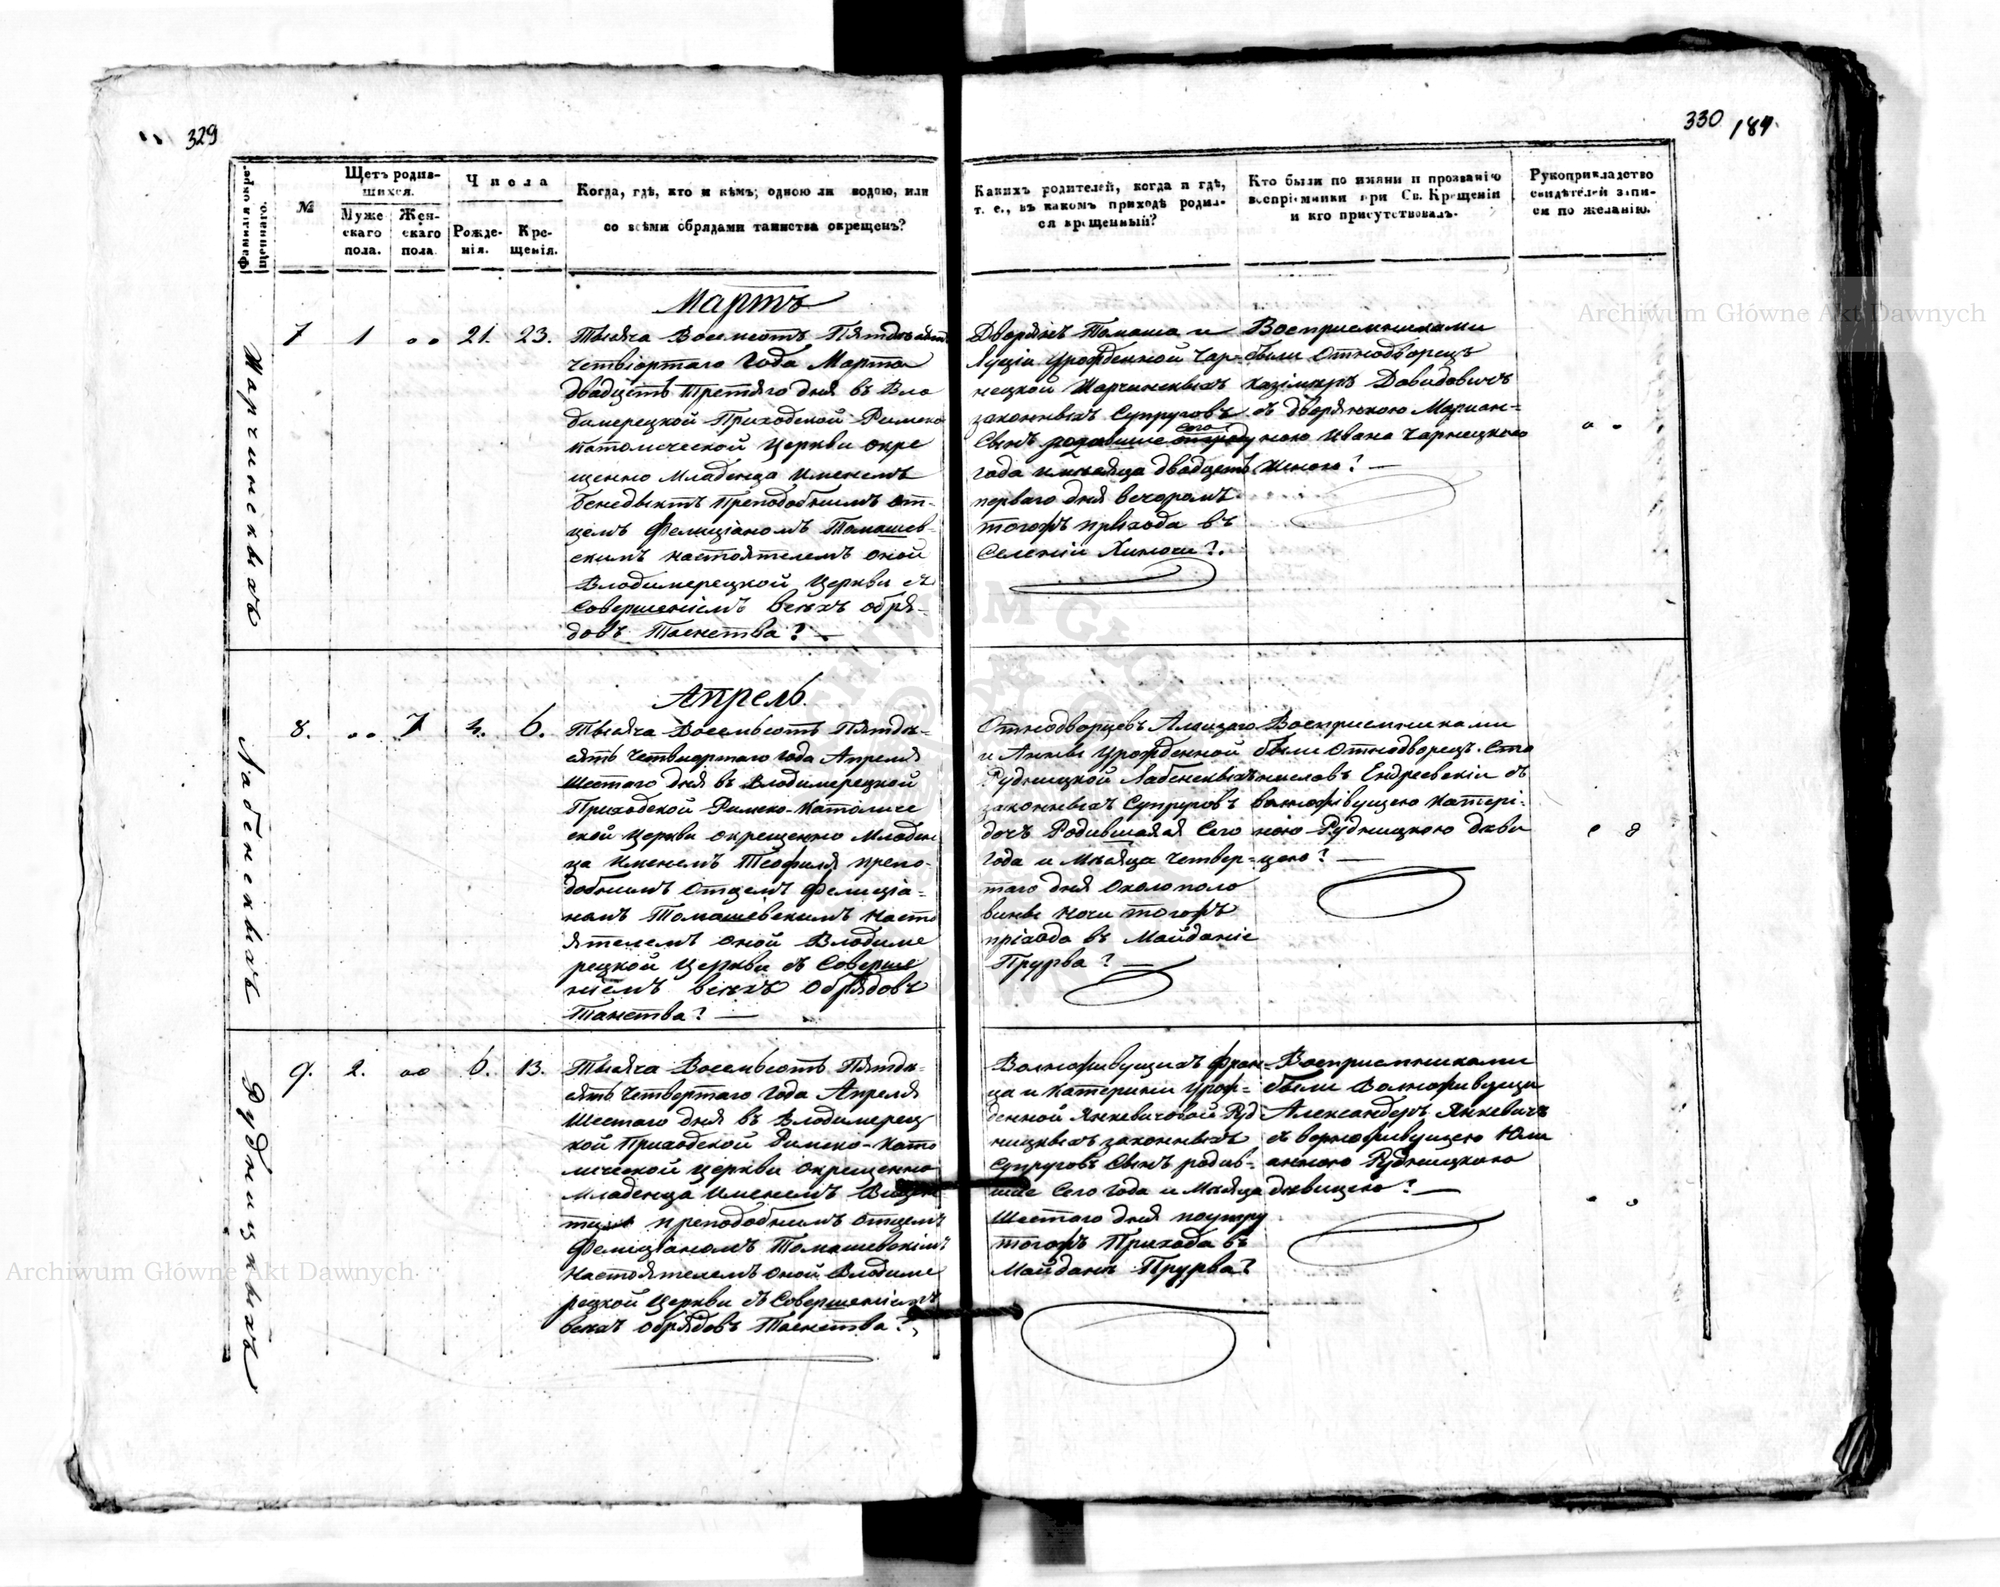 329
330
184
Фамилія окре-
щеннаго.
№
Щетъ родив-
шихся.
Муже
скаго
пола.
Жен-
скаго
пола
Числа
Рожде-
нія.
Кре-
щенія.
Когда, гдѣ, кто и кѣмъ; одною ли водою, или
со всѣми обрядами таинства окрещенъ?
Какихъ родителей, когда и гдѣ,
т. е., въ какомъ приходѣ родил-
ся крещенный?
Кто были по имяни и прозванію
воспріемники при Св. Крещеніи
и кто присутствовалъ.
Рукоприкладство
свидѣтелей запи-
си по желанію.
Мартъ
7
1
21.
23.
Тысяча Восемсотъ Пятдесятъ
Четвіортаго Года Марта
двадцеть третяго дня въ Вло
димерецкой Приходской Римско
католической Церкви окре
щенно Младенца Именемъ
Бенедыктъ Преподобнымъ От-
цемъ Фелиціаномъ Томашев-
скимъ настоятелемъ оной
Влодимерецкой Церкви съ
Совершеніемъ всѣхъ обря-
довъ Таенства? —
Дворянъ Томаша и
Луціи Урожденной Чар-
нецкой Марчинскихъ
законныхъ Супруговъ
Сынъ родившіе сего
года и мѣсяца двадцеть
перваго дня вечоромъ
тогожъ прихода въ
Селеніи Хиночи?.
Воспріемниками
были Отнодворецъ
Казімиръ Давидовичъ
съ дворянкою Мариан-
ною Ивана Чарнецкого
женою? —
Марчинскихъ
Апрель.
8.
7
4.
6.
Тысяча Восемьсотъ Пятде-
сятъ Четвиортаго года Апреля
Шестаго дня въ Влодимерецкой
Приходской Римско-Католиче
ской Церкви окрещенно Младен
ца Именемъ Теофиля препо-
добнымъ Отцемъ Фелиціа-
номъ Томашевскимъ Насто
ятелемъ оной Влодиме
рецкой Церкви съ Соверше
ніемъ всѣхъ Обрядовъ
Таинства? —
Отнодворцевъ Алоизаго
и Анны Урожденной
Рудницкой Лабенскихъ
законныхъ Супруговъ
дочъ Родившаяся Сего
года и Мѣсяца Четвер-
таго дня около поло
вины ночи тогожъ
пріхода въ Майданіе
Прурва? —
Воспріемниками
были Отнодворецъ Ста
ниславъ Ендреевскіи съ
вольноживущею Катері-
ною Рудницкою деви
цею? —
Лабенскихъ
9.
2.
6.
13.
Тысяча Восемьсотъ Пятде-
сятъ Четвертаго Года Апреля
Шестаго дня въ Влодимерец
кой Приходской Римско-Като
лической Церкви Окрещенно
Младенца Именемъ
преподобнымъ Отцемъ
Фелиціаномъ Томашевскімъ
Настоятелемъ Оной Влодиме
рецкой Церкви съ Совершеніемъ
всѣхъ Обрядовъ Таенства?
Вольноживущихъ Фран-
ца и Катерини Урож-
денной Янкевичовой Руд
ницкихъ законныхъ
Супруговъ Сынъ родив-
шіе Сего Года и Мѣсяца
Шестаго дня поутру
тогожъ Прихода въ
Майданъ Прурва?
Воспріемниками
были Вольноживущи
Александеръ Янкевичъ
съ вольноживущею Юли
анною Рудницкою
дѣвицею? —
Рудницкихъ
Archiwum Główne Akt Dawnych
Archiwum Główne Akt Dawnych